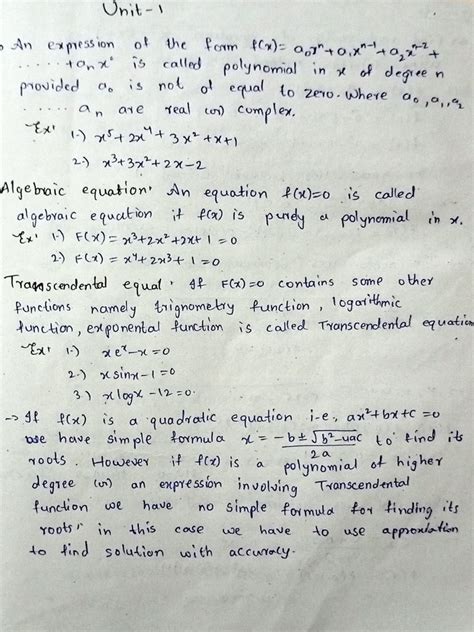 Unit-1
An expression of the form f(x)= a₀xⁿ+a₁xⁿ⁻¹+a₂xⁿ⁻²+
......+aₙx⁰ is called polynomial in x of degree n
provided a₀ is not of equal to zero. Where a₀,a₁,a₂
..... aₙ are real (or) complex.
Ex' 1.) x⁵+2x⁴+3x²+x+1
2.) x³+3x²+2x-2
Algebraic equation' An equation f(x)=0 is called
algebraic equation if f(x) is purely a polynomial in x.
Ex' 1.) F(x)=x³+2x²+2x+1=0
2) F(x)=x⁴+2x³+1=0.
Transcendental equal' If F(x)=0 contains some other
functions namely trignometry function, logarithmic
function, exponental function is called Transcendental equation
Ex' 1.) xeˣ-x=0
2.) xsinx-1=0
3) xlogx-12=0.
-> If f(x) is a quadratic equation i.e., ax²+bx+c=0
we have simple formula x = -b±√b²-4ac/2a to find its
roots. However if f(x) is a polynomial of higher
degree (or) an expression involving Transcendental
function we have no simple formula for finding its
roots' in this case we have to use approxlation
to find solution with accuracy.